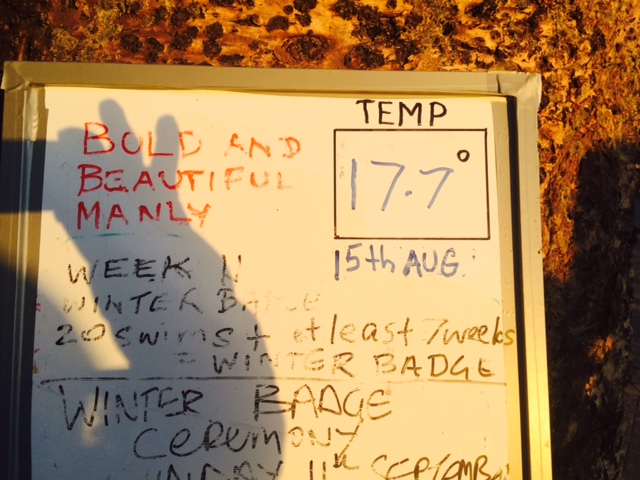 TEMP
BOLD AND
BEAUTIFUL
MANLY
17.7°
15th AUG
WEEK 11
WINTER BADGE
20 swims + at least 7 weeks
= WINTER BADGE
WINTER BADGE
CEREMONY
SUNDAY 11th SEPTEMBER